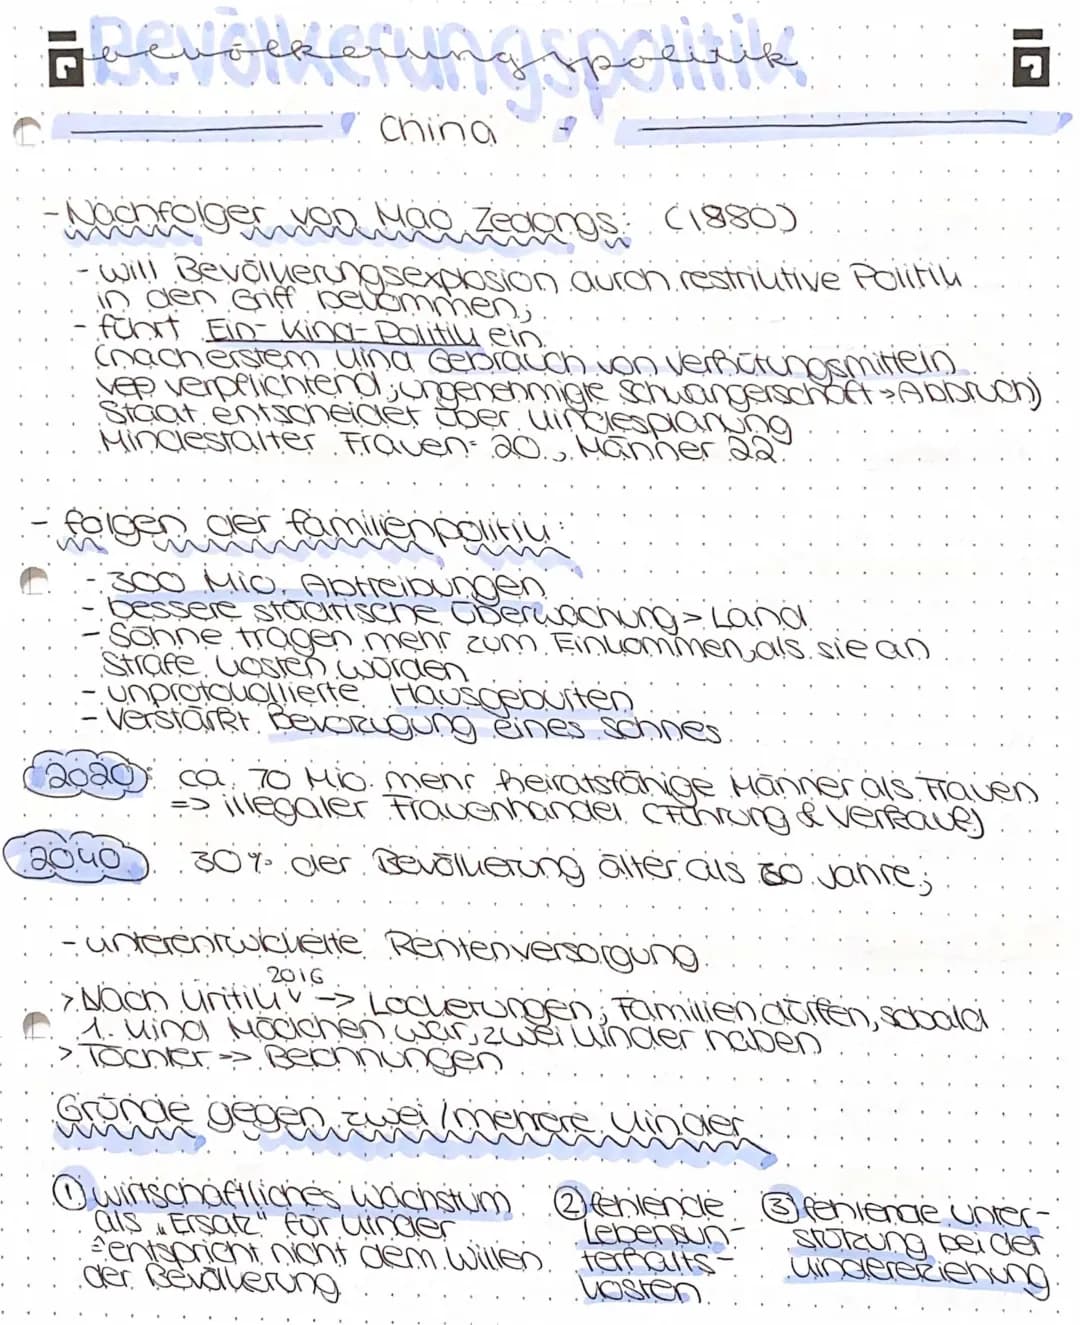 Bevölkerungspolitik
bevölkerungspolitik
China
- Nachfolger von Mao Zedongs: (1880)
- will Bevölkerungsexplosion durch restriktive Politik
in den Griff bekommen;
- führt Ein-Kind-Politik ein
(nach erstem Kind Gebrauch von Verhütungsmitteln
verpflichtend; ungenehmigte Schwangerschaft → Abbruch)
Staat entscheidet über Kindesplanung
Mindestalter Frauen: 20., Männer 22.
- folgen der familienpolitik:
- 300 Mio. Abtreibungen
- bessere städtische Überwachung > Land
- Söhne tragen mehr zum Einkommen, als sie an
Strafe kosten würden
- unprotokollierte Hausgeburten
- verstärkt Bevorzugung eines Sohnes
2020: ca. 70 Mio. mehr heiratsfähige Männer als Frauen
=> illegaler Frauenhandel (& Verkauf)
2040 30% der Bevölkerung älter als 60 Jahre;
- unterentwickelte Rentenversorgung
2016
> Nach Kritik v -> Lockerungen; Familien dürfen, sobald
1. Kind Mädchen war, zwei Kinder haben
> Töchter => Belohnungen
Gründe gegen zwei/mehrere Kinder
① wirtschaftliches Wachstum
als "Ersatz" für Kinder
≙ entspricht nicht dem Willen
der Bevölkerung
② fehlende
Lebensun-
terhalts-
kosten
③ fehlende Unter-
stützung bei der
Kindererziehung